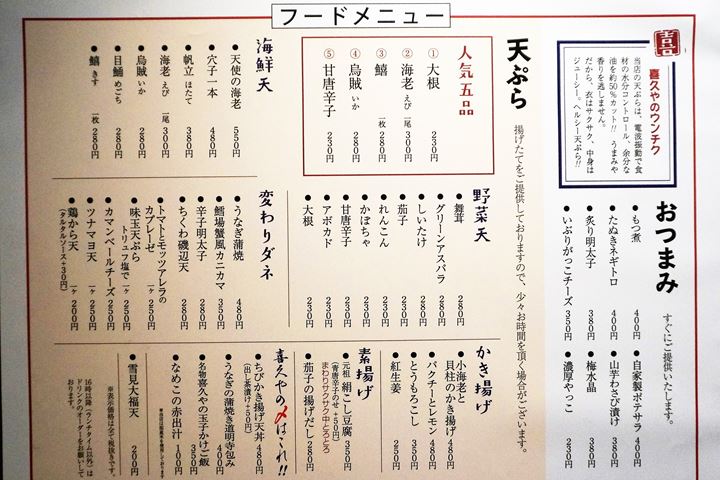 フードメニュー
喜久や
喜久やのウンチク
当店の天ぷらは、電波振動で食
材の水分コントロール、余分な
油を約50％カット!!うまみや
香りを逃しません。
だから、衣はサクサク、中身は
ジューシー、ヘルシー天ぷら!!
おつまみ
すぐにご提供いたします。
もつ煮 400円
たぬきネギトロ 400円
炙り明太子 380円
いぶりがっこチーズ 350円
自家製ポテサラ 400円
山芋わさび漬け 380円
梅水晶 380円
濃厚やっこ 230円
天ぷら
揚げたてをご提供しておりますので、少々お時間を頂く場合がございます。
人気五品
①大根 230円
②海老 えび 一尾 300円
③鱚 一枚 280円
④烏賊 いか 280円
⑤甘唐辛子 230円
海鮮天
天使の海老 550円
穴子一本 480円
帆立 ほたて 380円
海老 えび 一尾 300円
烏賊 いか 280円
目鯒 めごち 280円
鱚 きす 一枚 280円
野菜天
舞茸 280円
グリーンアスパラ 280円
しいたけ 250円
茄子 230円
れんこん 230円
かぼちゃ 230円
甘唐辛子 230円
アボカド 230円
大根 230円
変わりダネ
うなぎ蒲焼 480円
鱈場蟹風カニカマ 350円
辛子明太子 280円
ちくわ磯辺天 280円
トマトとモッツアレラの
カプレーゼ 一ケ 250円
味玉天ぷら
トリュフ塩で 一ケ 250円
カマンベールチーズ 250円
ツナマヨ天 一ケ 250円
鶏から天 一ケ 200円
(タルタルソース+30円)
かき揚げ
小海老と
貝柱のかき揚げ 480円
パクチーとレモン 480円
とうもろこし 350円
紅生姜 250円
素揚げ
元祖 絹こし豆腐 350円
(青唐辛子のせ+50円)
まわりサクサク中とろとろ
茄子の揚げだし 280円
喜久やの〆はこれ!!
ちびかき揚げ天丼 480円
(出し茶漬け+50円)
うなぎの蒲焼き道明寺包み 400円
名物喜久やの玉子かけご飯 350円
なめこの赤出汁 100円
雪見大福天 200円
※表示価格は全て税抜きです。
16時以降(ランチタイム以外)は
ドリンクのオーダーをお願いして
おります。